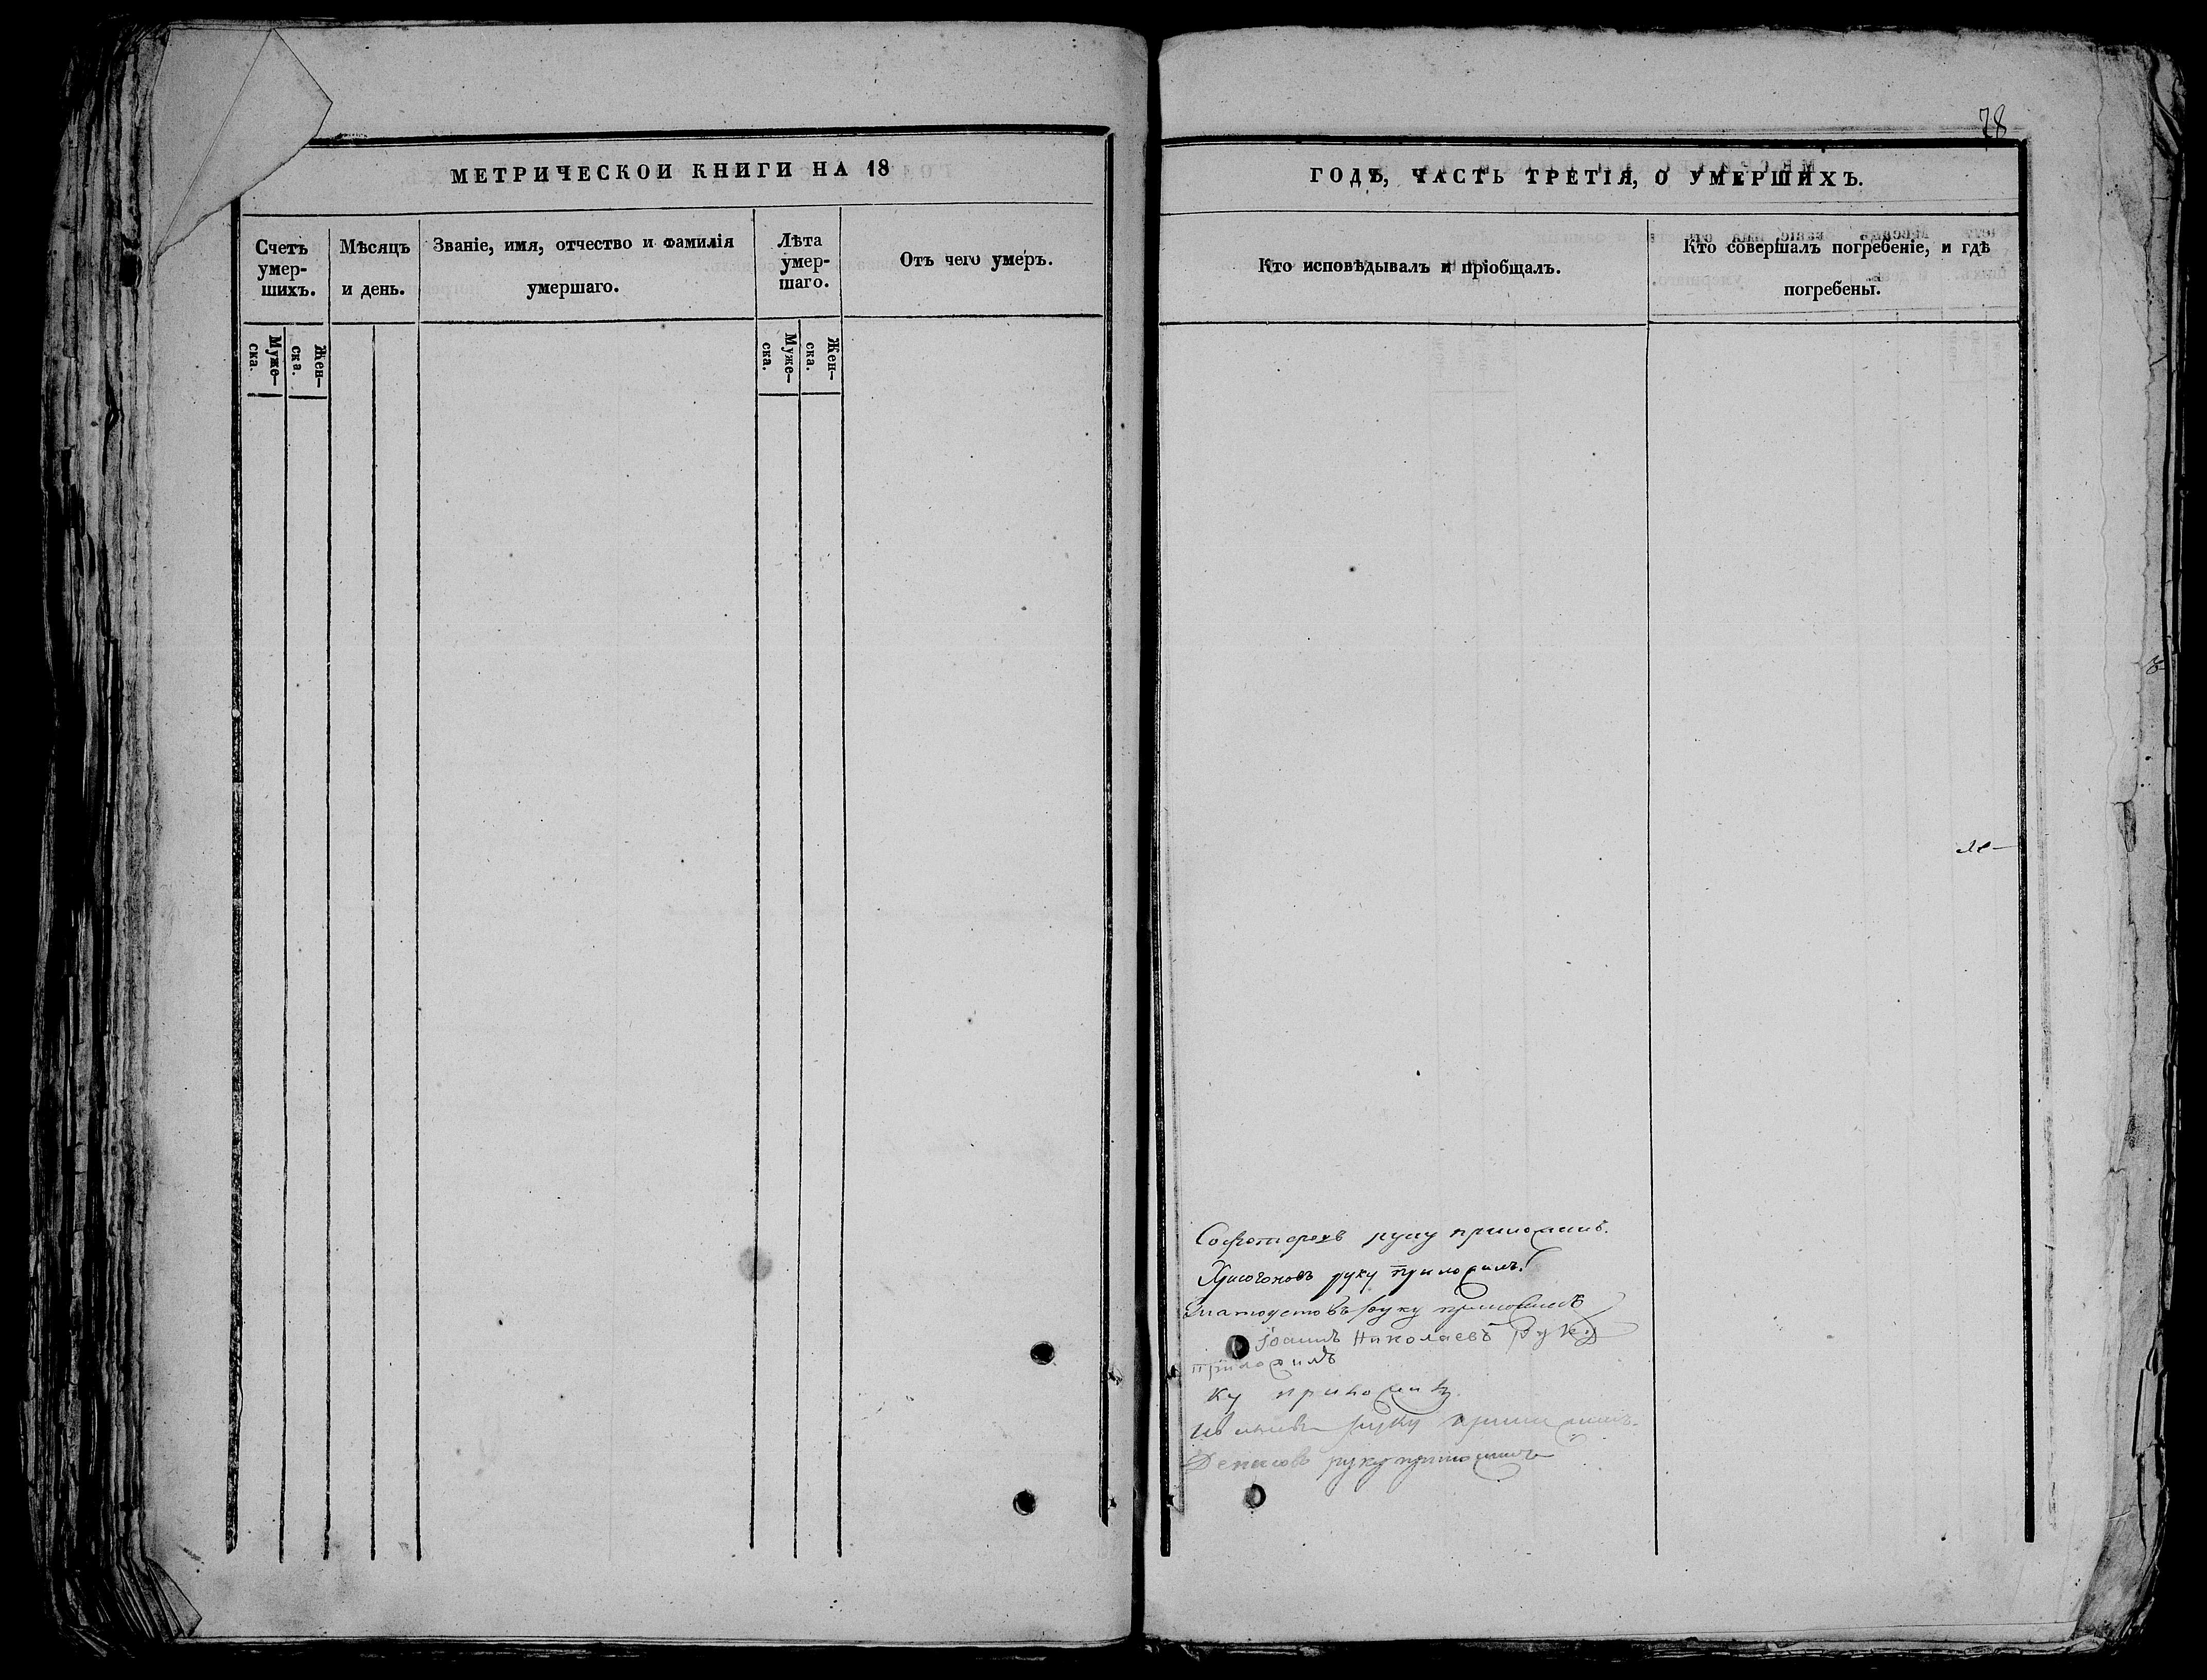 78
МЕТРИЧЕСКОЙ КНИГИ НА 18
ГОДЪ, ЧАСТЬ ТРЕТІЯ, О УМЕРШИХЪ.
Счетъ
умер-
шихъ.
Мѣсяцъ
и день.
Званіе, имя, отчество и фамилія
умершаго.
Лѣта
умер-
шаго.
Отъ чего умеръ.
Муже-
ска.
Жен-
ска.
Муже-
ска.
Жен-
ска.
Кто исповѣдывалъ и пріобщалъ.
Кто совершалъ погребеніе, и гдѣ
погребены.
руку приложилъ.
руку приложилъ.
Златоустовъ руку приложилъ
Іоаннъ Николаевъ руку
приложилъ
ку приложилъ
руку приложилъ.
руку приложилъ